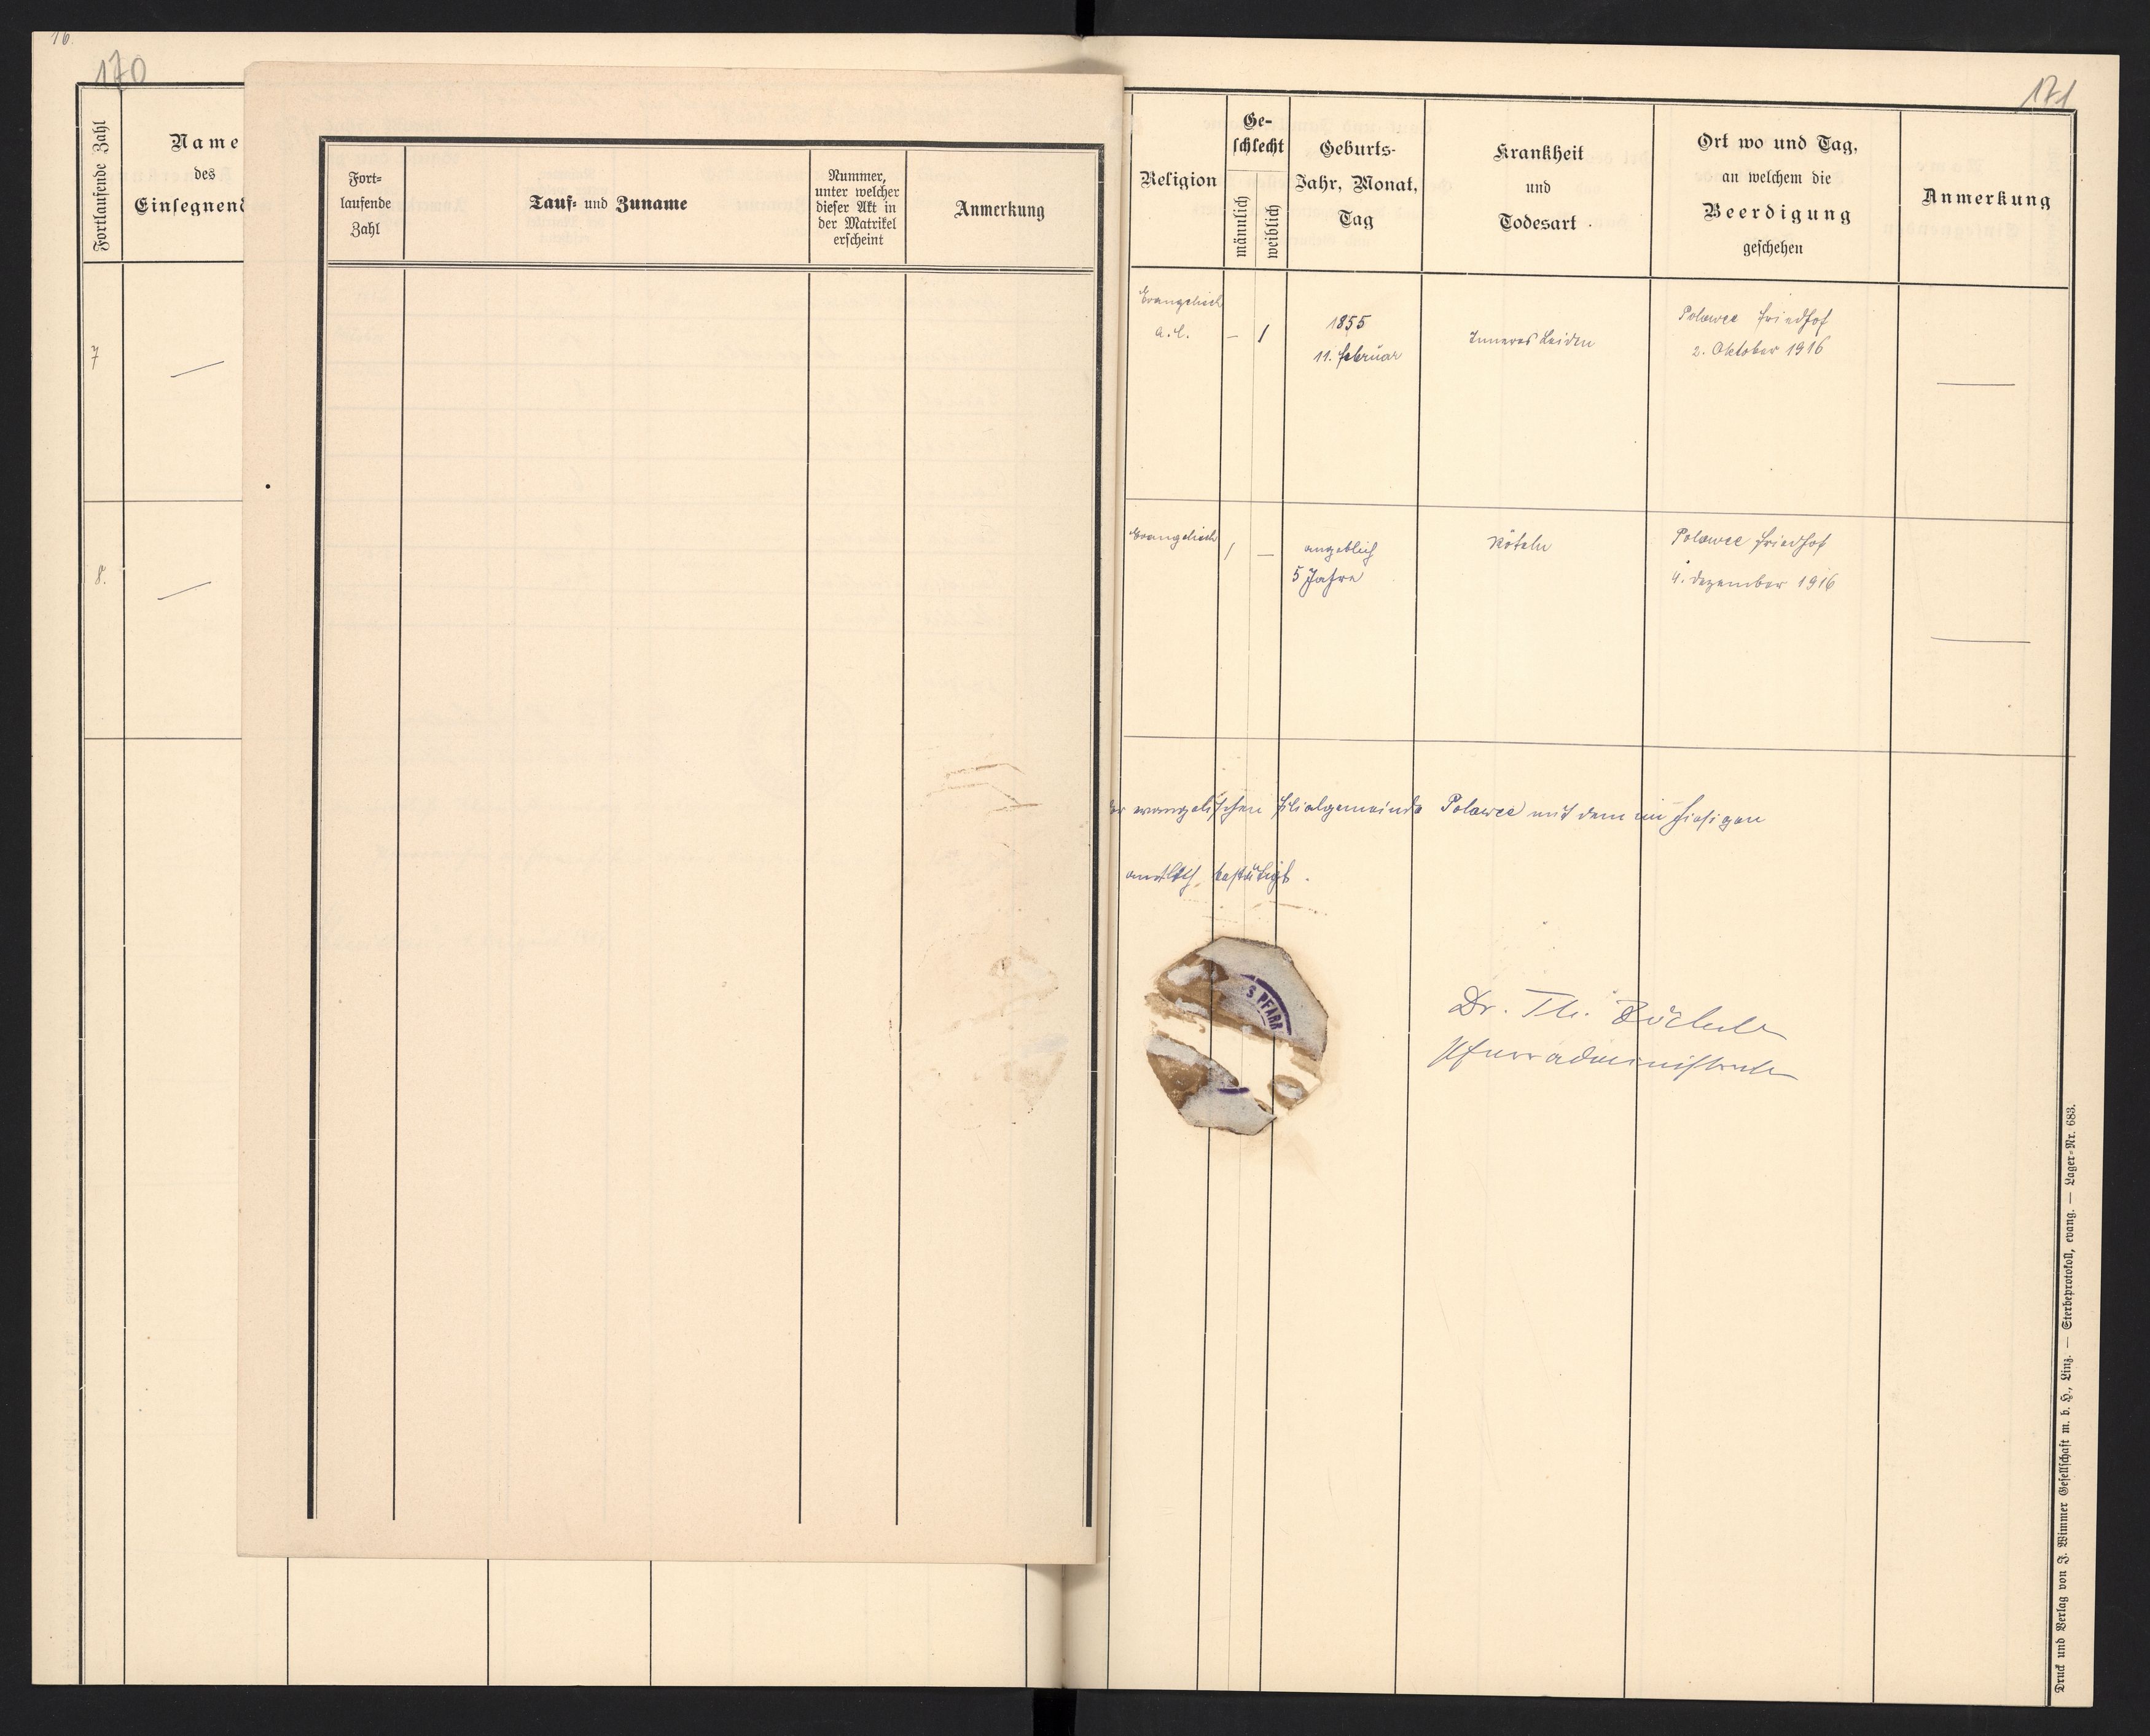 16.
170
171
Fortlaufende Zahl
Name
des
Einsegnend
Fort-
laufende
Zahl
Tauf- und Zuname
Nummer,
unter welcher
dieser Akt in
der Matrikel
erscheint
Anmerkung
Religion
Ge-
schlecht
männlich
weiblich
Geburts-
Jahr, Monat,
Tag
Krankheit
und
Todesart
Ort wo und Tag,
an welchem die
Beerdigung
geschehen
Anmerkung
7
Evangelisch
A.C.
— 1
1855
11. Februar
Inneres Leiden
Polowce Friedhof
2. Oktober 1916
8.
Evangelisch
1 —
angeblich
5 Jahre
Röteln
Polowce Friedhof
4. Dezember 1916
der evangelischen Filialgemeinde Polowce mit dem im hiesigen
amtlich bestätigt.
S PFARR
Dr. Th.
Pfarradministrator
Druck und Verlag von J. Wimmer Gesellschaft m. b. H., Linz. — Sterbeprotokoll, evang. — Lager-Nr. 683.